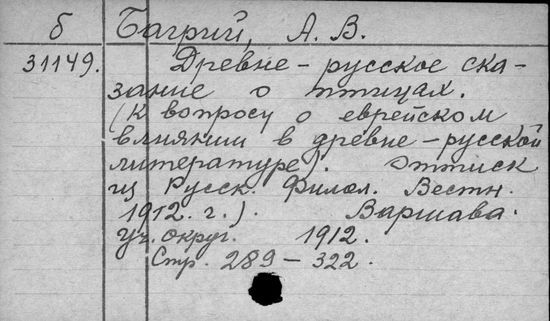 б Багрий, А. В.
31149. Древне-русское ска-
зание о птицах.
(К вопросу о еврейском
влиянии в древне-русской
литературе). Оттиск
из Русск. Филол. Вестн.
1912. г.). Варшава.
Уч. округ. 1912.
Стр. 289-322.